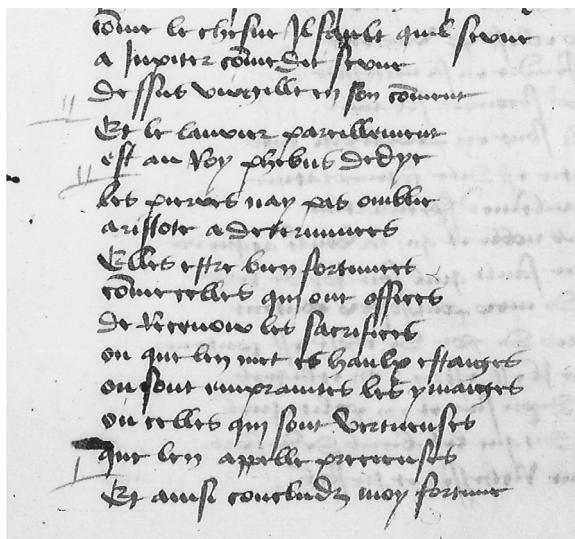 cõme le chesne Il fault quil serue
a Jupiter cõme dit serue
dessus virgille en son cõment
Et le laurier pareillement
est au Roy phebus dedye
les pierres nay pas oublie
aristote a determinees
Elles estre bien fortunees
cõme celles qui ont offices
de Receuoir les sacrifices
ou que len met es haulx estaiges
ou sont empraintes les ymaiges
ou celles qui sont vertueuses
que len appelle precieuses
Et ainsi concludz moy fortune